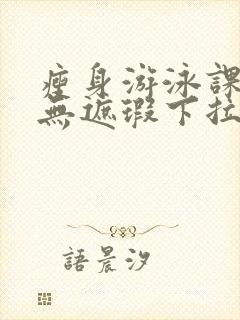 瘦身游泳課
無遮瑕下拉
語晨汐